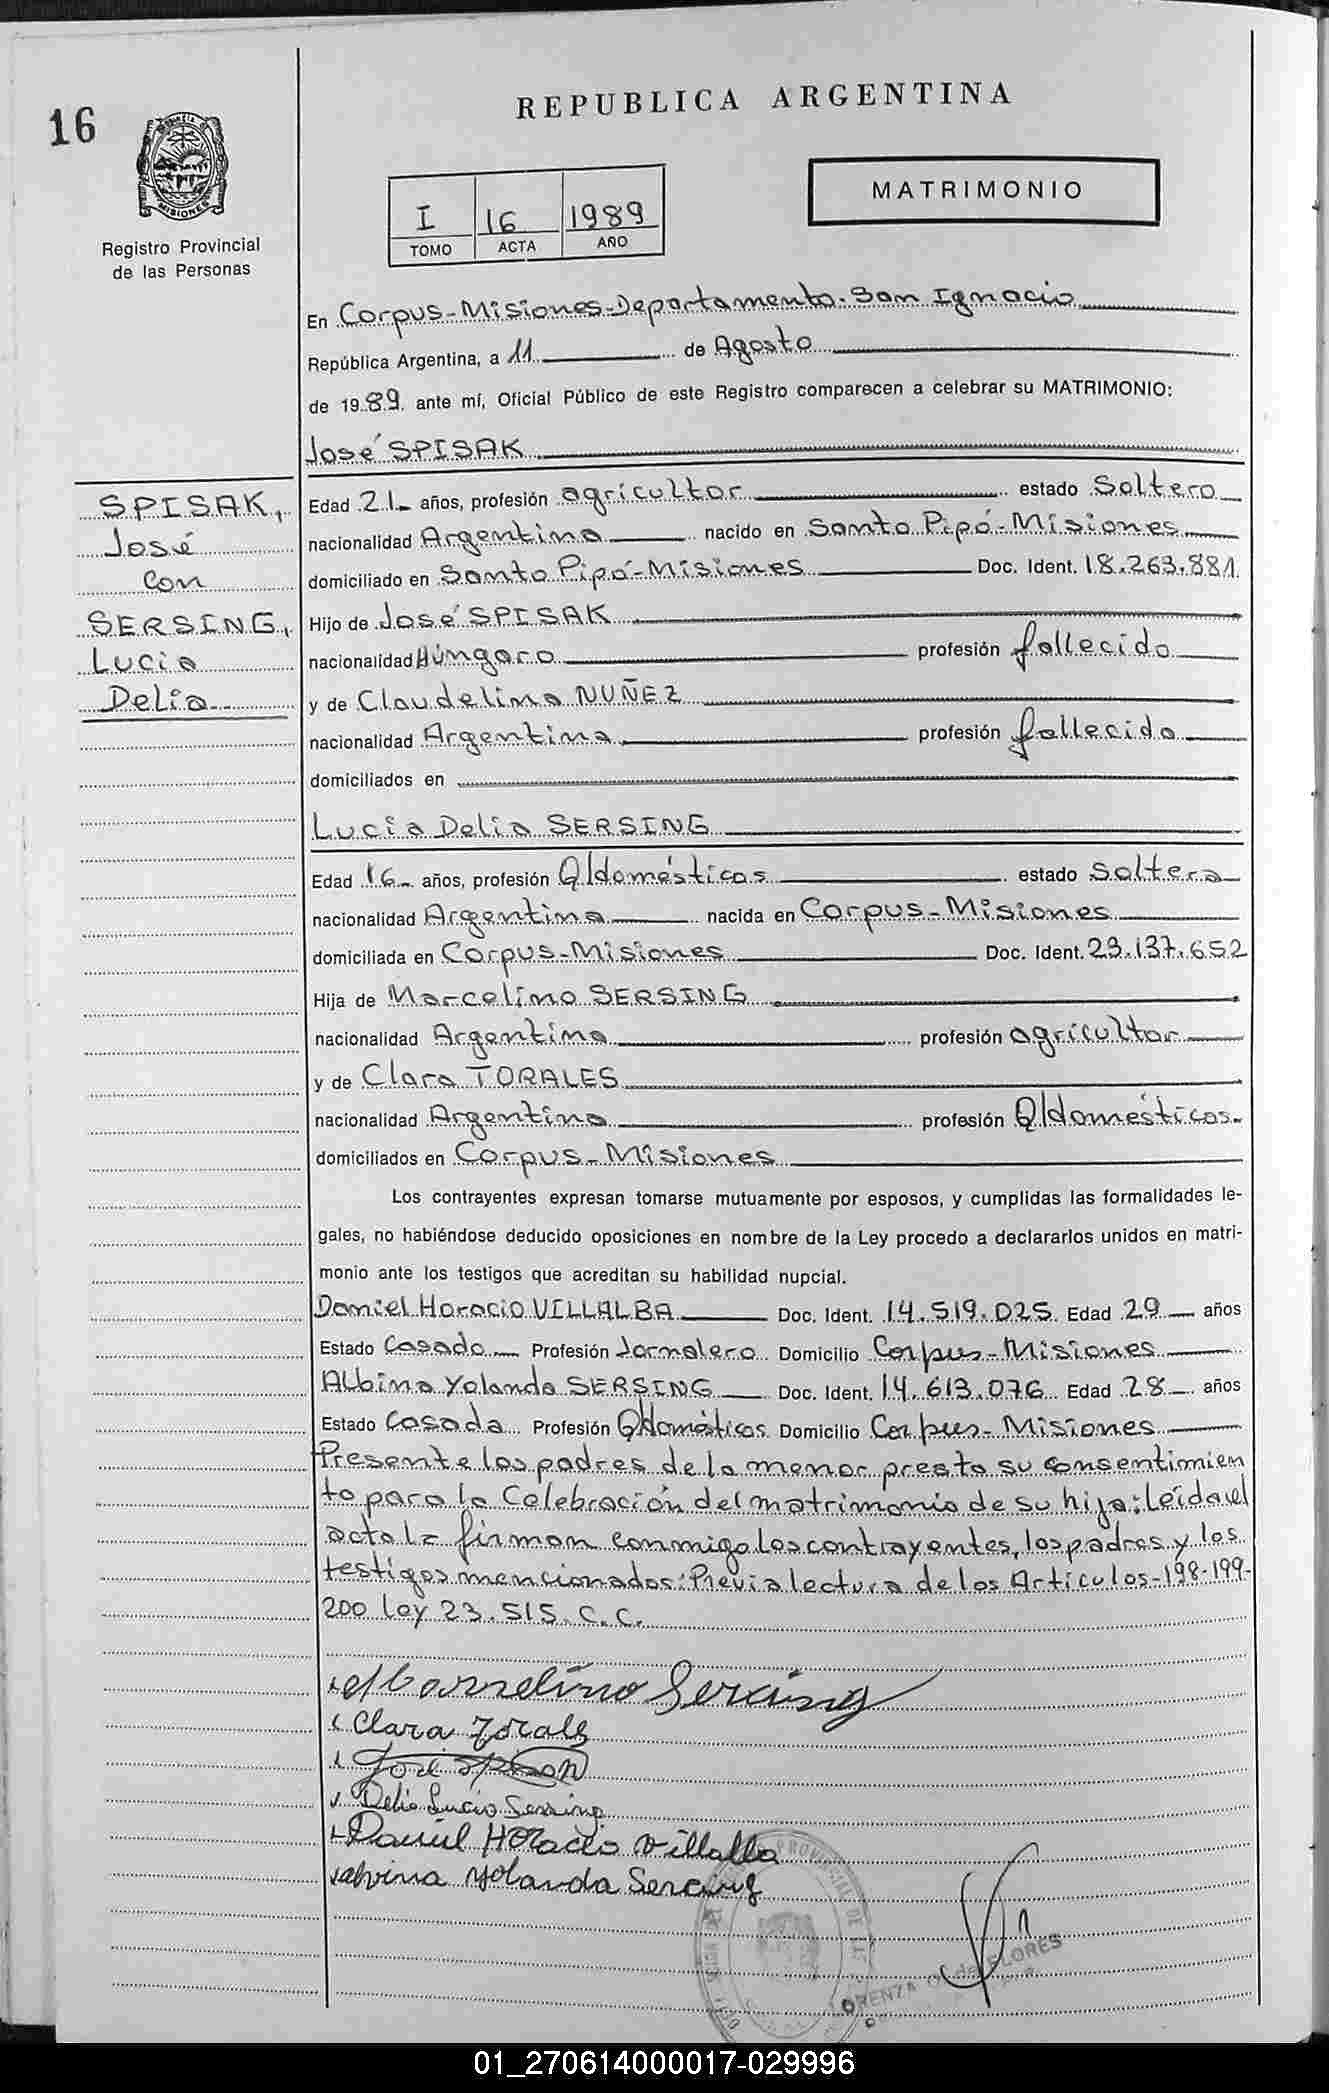 16
REPUBLICA ARGENTINA
MISIONES
Registro Provincial
de las Personas
I 16 1989
TOMO ACTA AÑO
MATRIMONIO
En Corpus-Misiones-Departamento. San Ignacio
República Argentina, a 11 de Agosto
de 1989 ante mí, Oficial Público de este Registro comparecen a celebrar su MATRIMONIO:
José SPISAK
SPISAK,
José
con
SERSING,
Lucia
Delia
Edad 21 años, profesión agricultor estado Soltero
nacionalidad Argentina nacido en Santo Pipó-Misiones
domiciliado en Santo Pipó-Misiones Doc. Ident. 18.263.881
Hijo de José SPISAK
nacionalidad Húngaro profesión fallecido
y de Claudelina NUÑEZ
nacionalidad Argentina profesión fallecida
domiciliados en
Lucia Delia SERSING
Edad 16 años, profesión Q/domésticos estado Soltera
nacionalidad Argentina nacida en Corpus-Misiones
domiciliada en Corpus-Misiones Doc. Ident. 23.137.652
Hija de Marcelino SERSING
nacionalidad Argentina profesión agricultor
y de Clara TORALES
nacionalidad Argentina profesión Q/domésticos
domiciliados en Corpus-Misiones
Los contrayentes expresan tomarse mutuamente por esposos, y cumplidas las formalidades le-
gales, no habiéndose deducido oposiciones en nombre de la Ley procedo a declararlos unidos en matri-
monio ante los testigos que acreditan su habilidad nupcial.
Daniel Horacio VILLALBA Doc. Ident. 14.519.025 Edad 29 años
Estado Casado Profesión Jornalero Domicilio Corpus-Misiones
Albina Yolanda SERSING Doc. Ident. 14.613.076 Edad 28 años
Estado Casada Profesión Q/domésticos Domicilio Corpus-Misiones
Presente los padres de la menor presta su consentimien
to para la Celebración del matrimonio de su hija: Leída el
acta la firman conmigo los contrayentes, los padres y los
testigos mencionados: Previa lectura de los Artículos-198-199-
200 Ley 23.515. C.C.
Marcelino Sercing
Clara Torales
José
Delia Lucia Sersing
Daniel Horacio Villalba
Alvina Yolanda Sercing
de FLORES
01_270614000017-029996